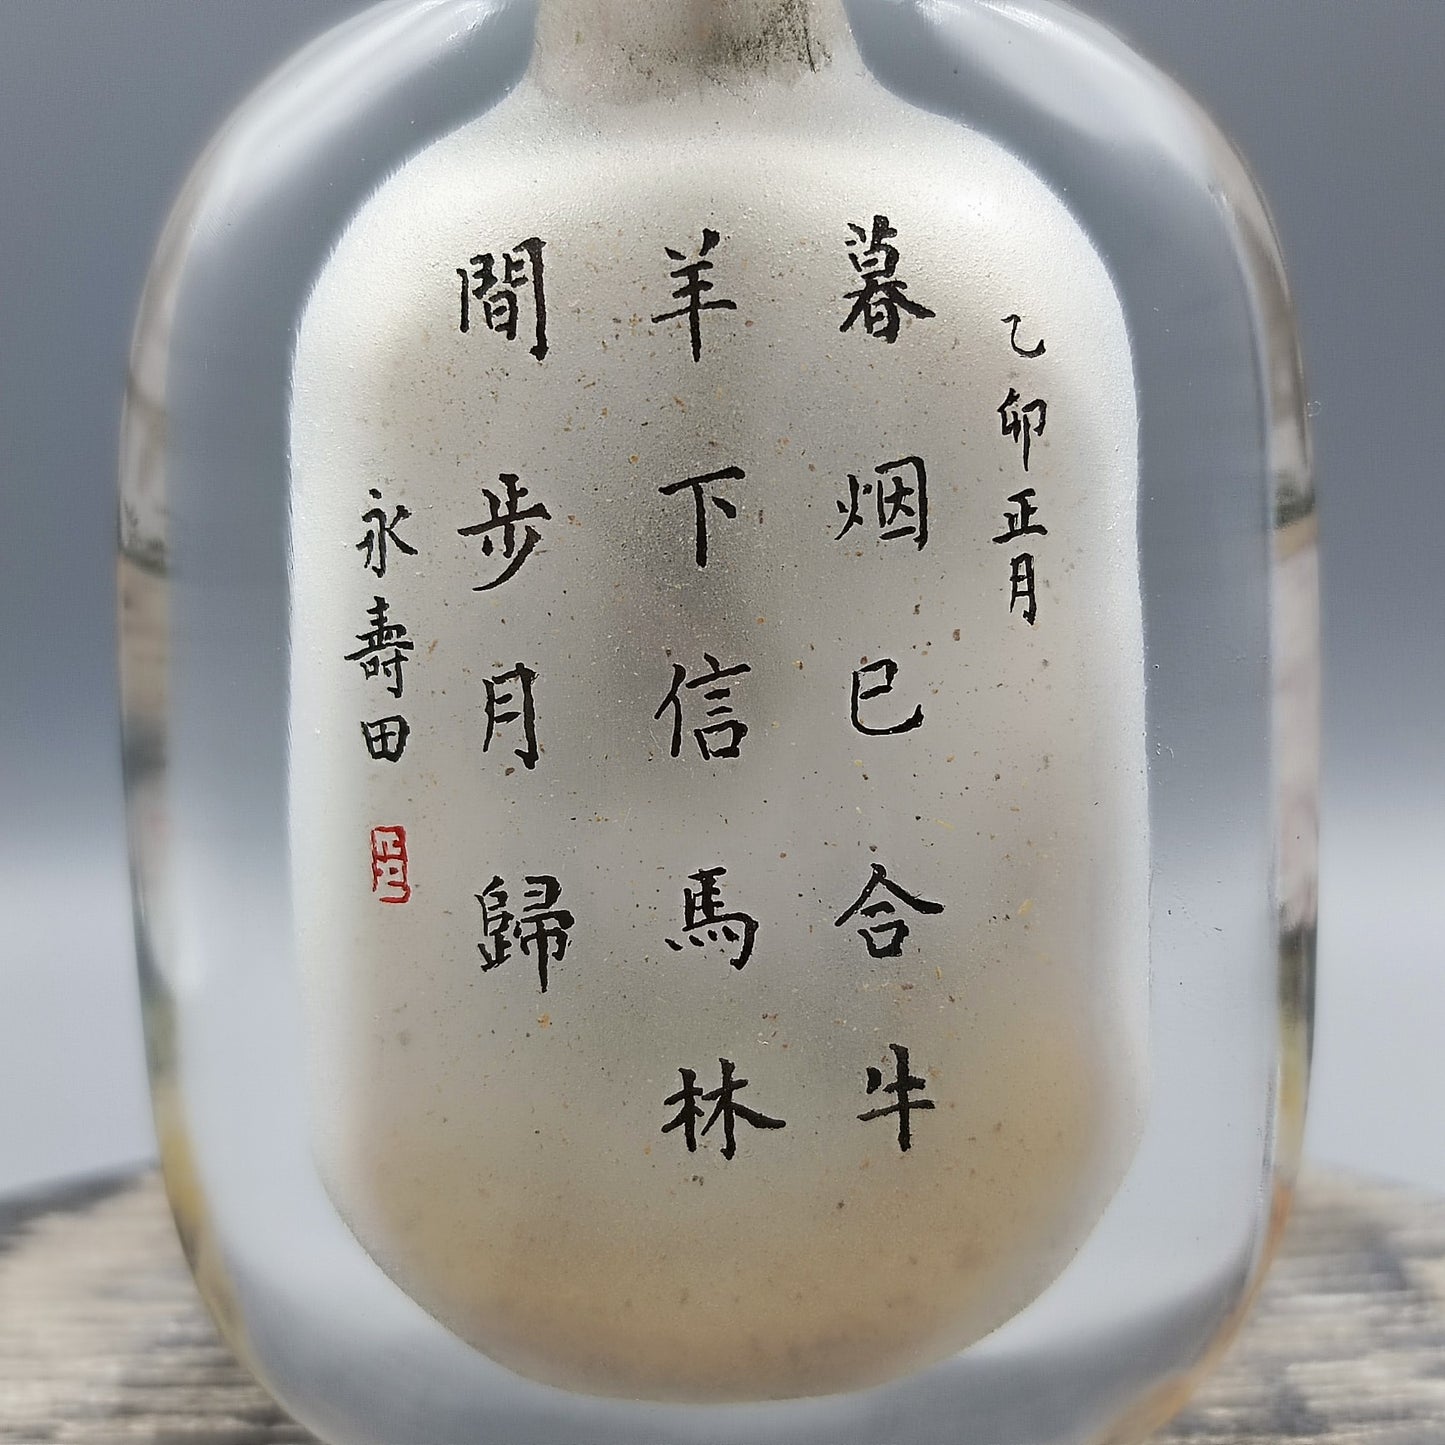 乙卯正月
暮烟已合牛
羊下信馬林
間步月歸
永壽田